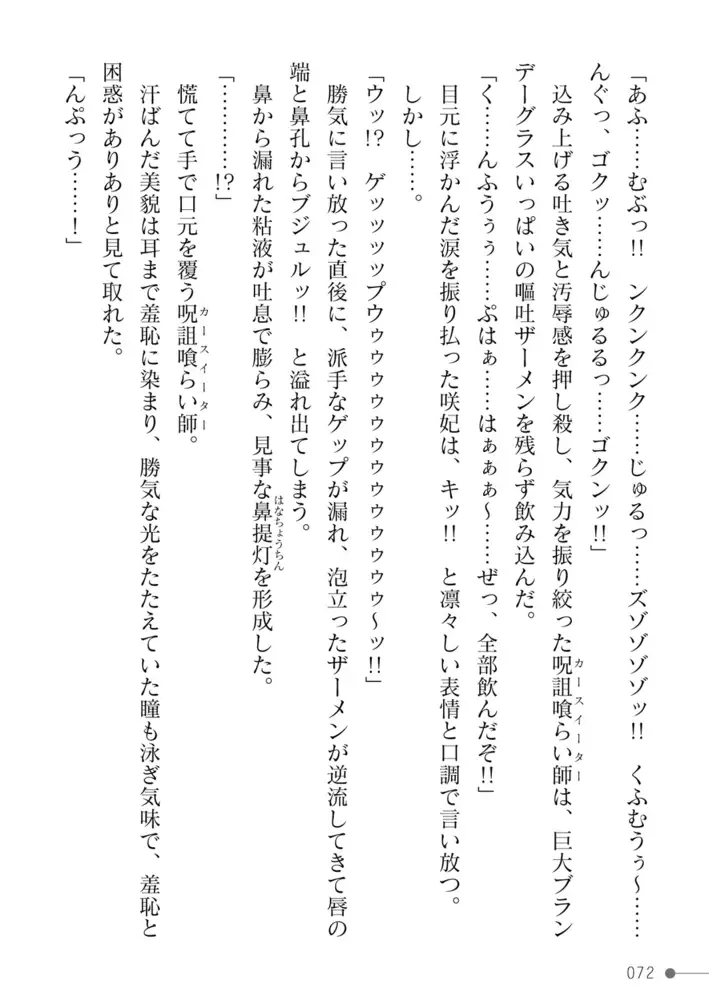 「あふ……むぶっ!!　ンクンクンク……じゅるっ……ズゾゾゾゾッ!!　くふむうぅ～……
んぐっ、ゴクッ……んじゅるるっ……ゴクンッ!!」
込み上げる吐き気と汚辱感を押し殺し、気力を振り絞った呪詛喰らい師は、巨大ブラン
カースイーター
デーグラスいっぱいの嘔吐ザーメンを残らず飲み込んだ。
「く……んふうぅぅ……ぷはぁ……はぁぁぁ～……ぜっ、全部飲んだぞ!!」
目元に浮かんだ涙を振り払った咲妃は、キッ!!　と凛々しい表情と口調で言い放つ。
しかし……。
「ウッ!?　ゲッッッップウゥゥゥゥゥゥゥゥゥゥゥゥ～ッ!!」
勝気に言い放った直後に、派手なゲップが漏れ、泡立ったザーメンが逆流してきて唇の
端と鼻孔からブジュルッ!!　と溢れ出てしまう。
鼻から漏れた粘液が吐息で膨らみ、見事な鼻提灯を形成した。
はなちょうちん
「…………!?」
慌てて手で口元を覆う呪詛喰らい師。
カースイーター
汗ばんだ美貌は耳まで羞恥に染まり、勝気な光をたたえていた瞳も泳ぎ気味で、羞恥と
困惑がありありと見て取れた。
「んぷっう……！」
072